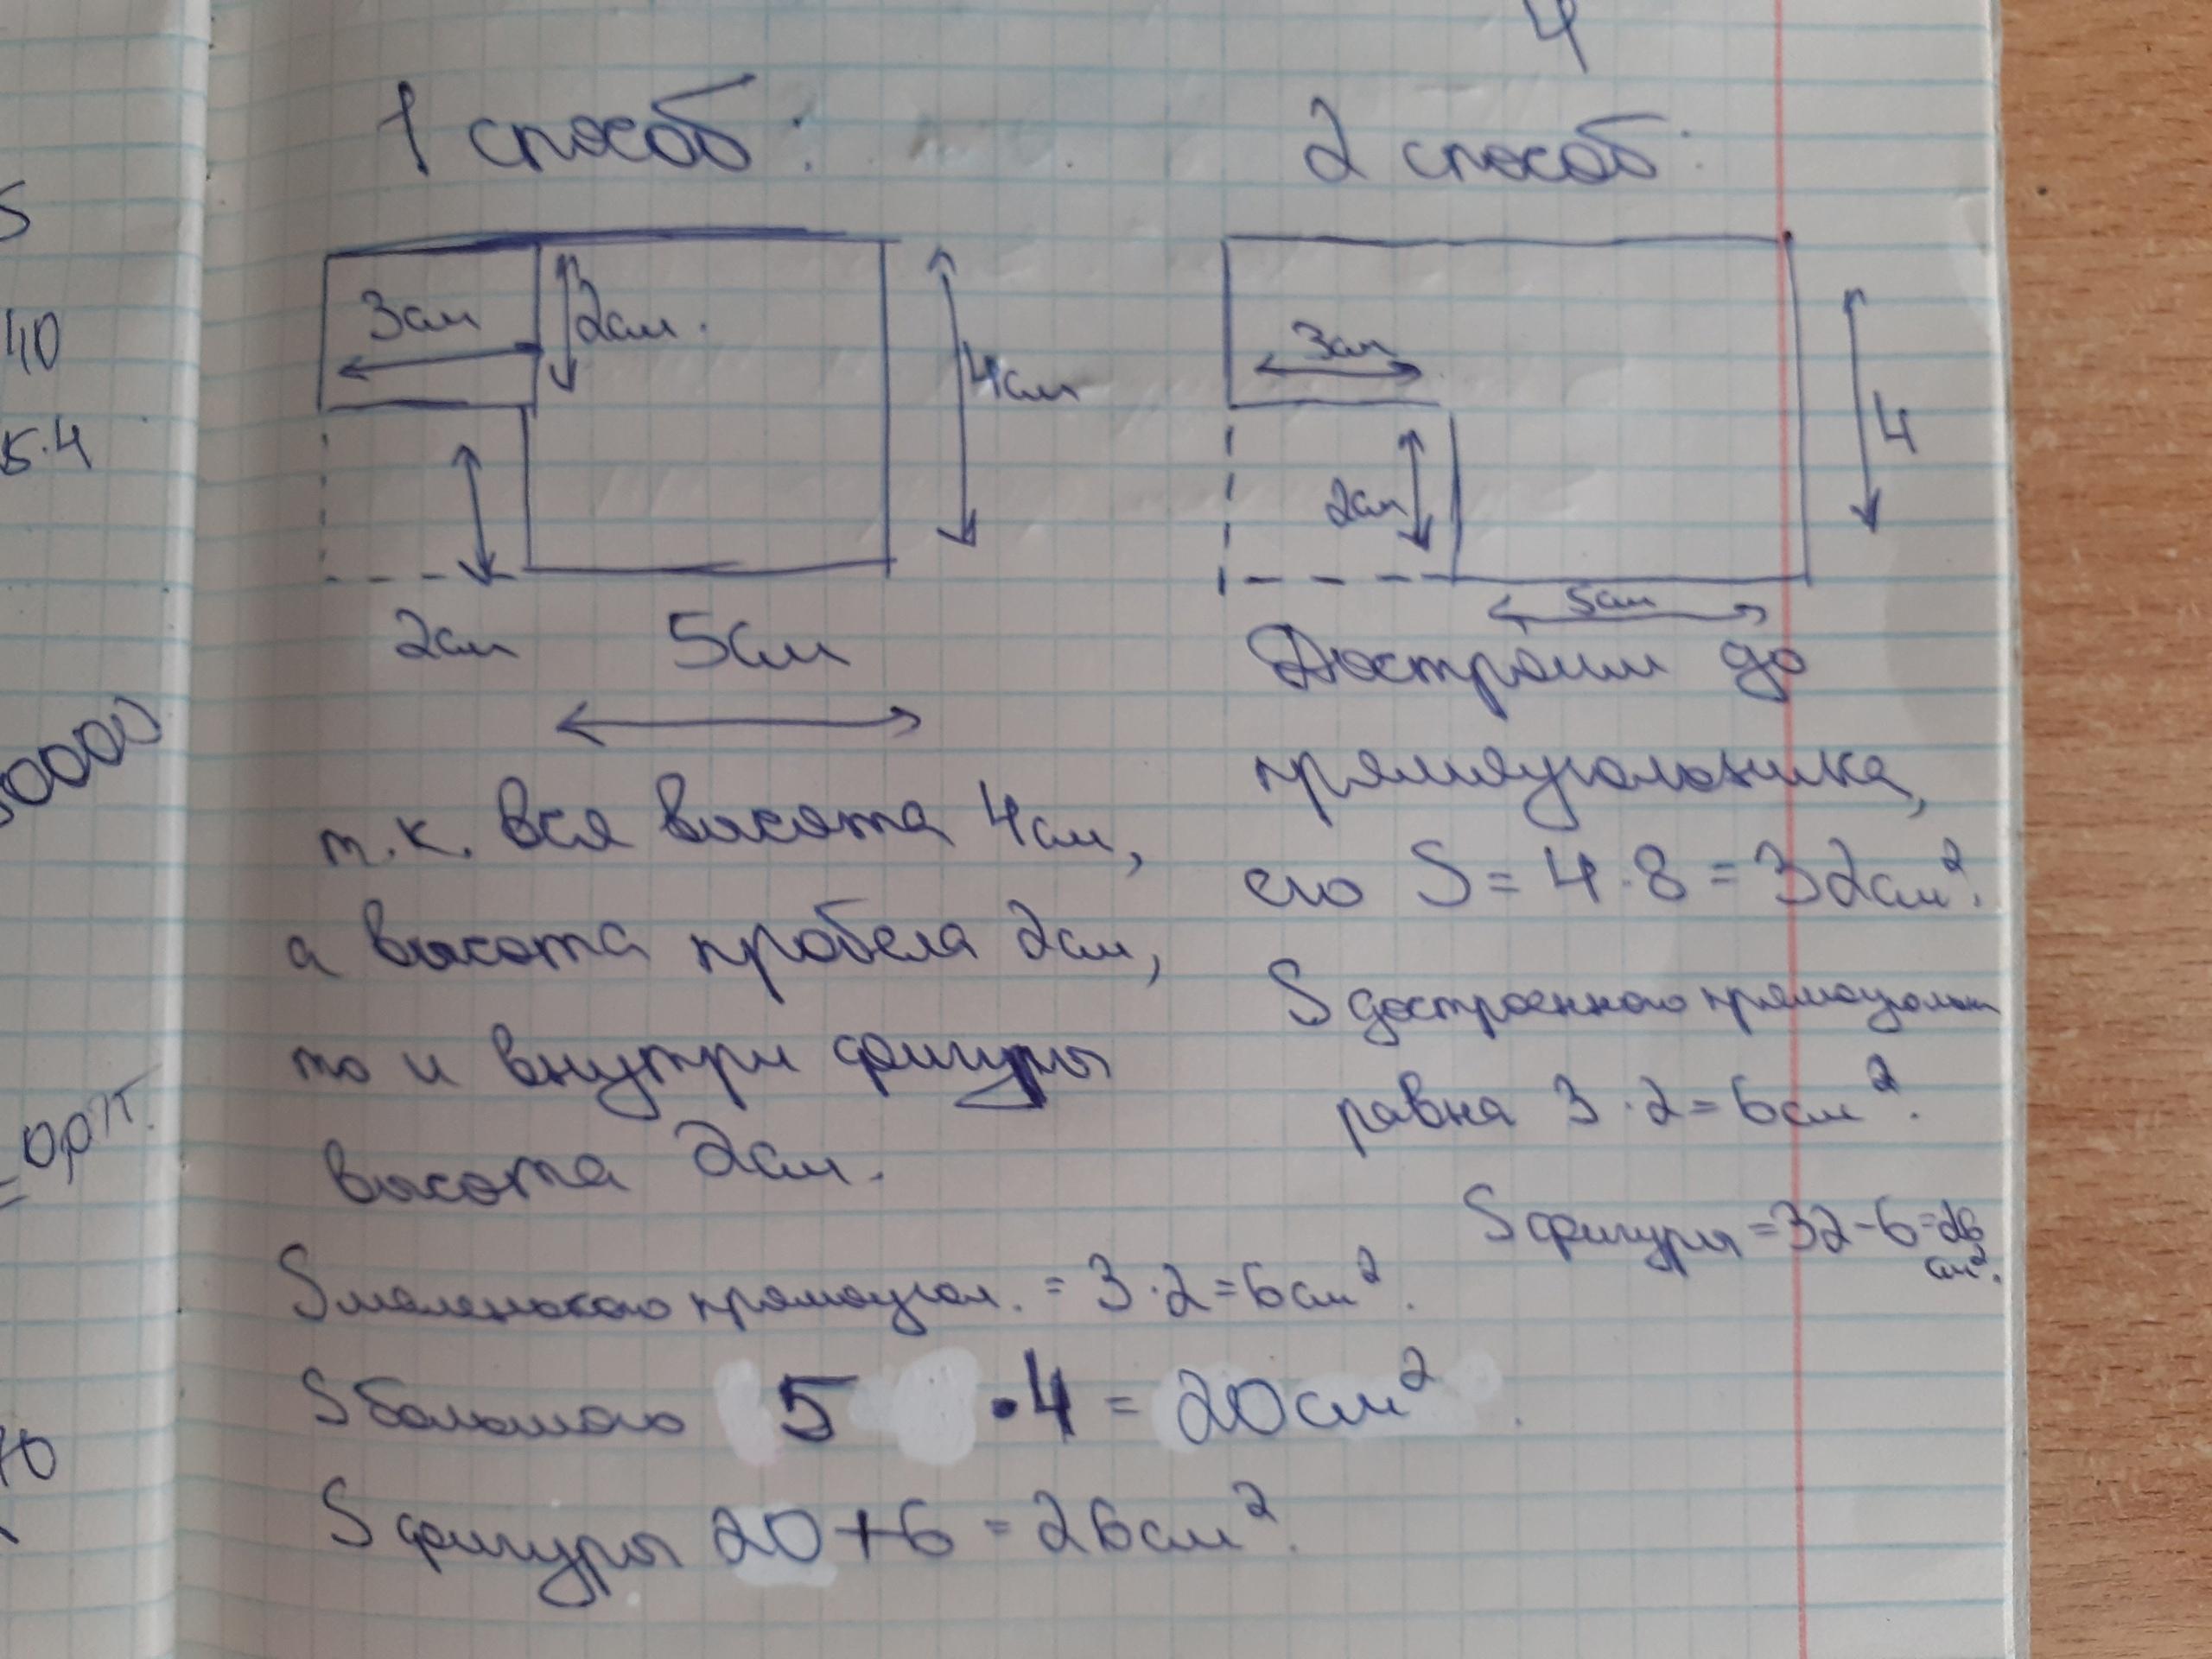 5
40
5.4
0000
= 0,0
70
4
1 способ:
3см
2см.
4см
2см
5см
т.к. вся высота 4см,
а высота пробела 2см,
то и внутри фигуры
высота 2см.
S маленького прямоугол. = 3·2=6см².
S большого 5 ·4 = 20см².
S фигуры 20+6 = 26см².
2 способ:
3см
2см
4
5см
Достроим до
прямоугольника,
его S = 4·8 = 32см².
S достроенного прямоугольн
равна 3·2=6см².
S фигуры =32-6=26
см².